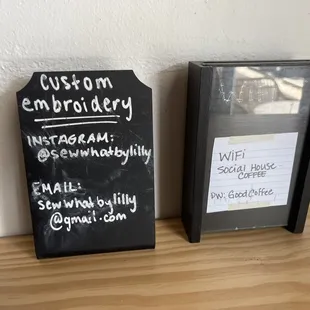 custom
embroidery
INSTAGRAM:
@sewwhatbylilly
EMAIL:
sewwhatbylilly
@gmail.com
WiFi
Social House
COFFEE
PW: GoodCoffee